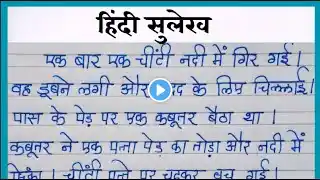 हिंदी सुलेख
एक बार एक चींटी नदी में गिर गई।
वह डूबने लगी और मदद के लिए चिल्लाई
पास के पेड़ पर एक कबूतर बैठा था।
कबूतर ने एक पत्ता पेड़ का तोड़ा और नदी में
फेंका। चींटी पत्ते पर चढ़कर बच गई।